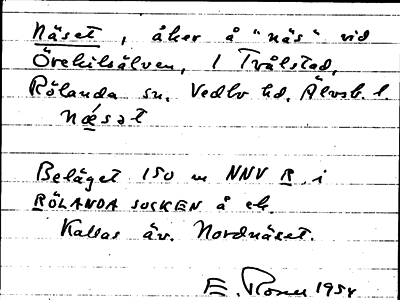 Näset, åker å "näs" vid
Örekilsälven, 1 Tvålstad,
Rölanda sn. Vedbo hd. Älvsb. l.
Næ´sət
Beläget 150 m NNV R i
RÖLANDA SOCKEN å ek.
Kallas äv. Nordnäset.
E. Rosen 1954